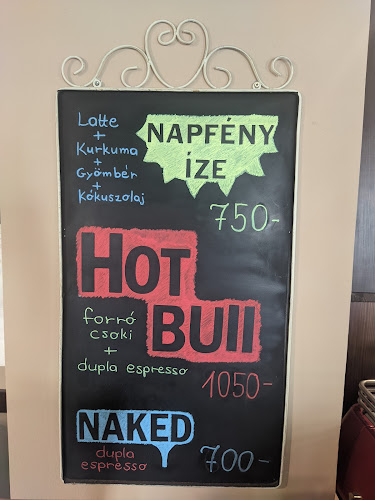 Latte
+
Kurkuma
+
Gyömbér
+
Kókuszolaj
NAPFÉNY
ÍZE
750-
HOT
BUll
forró
csoki
+
dupla espresso
1050-
NAKED
dupla
espresso
700-